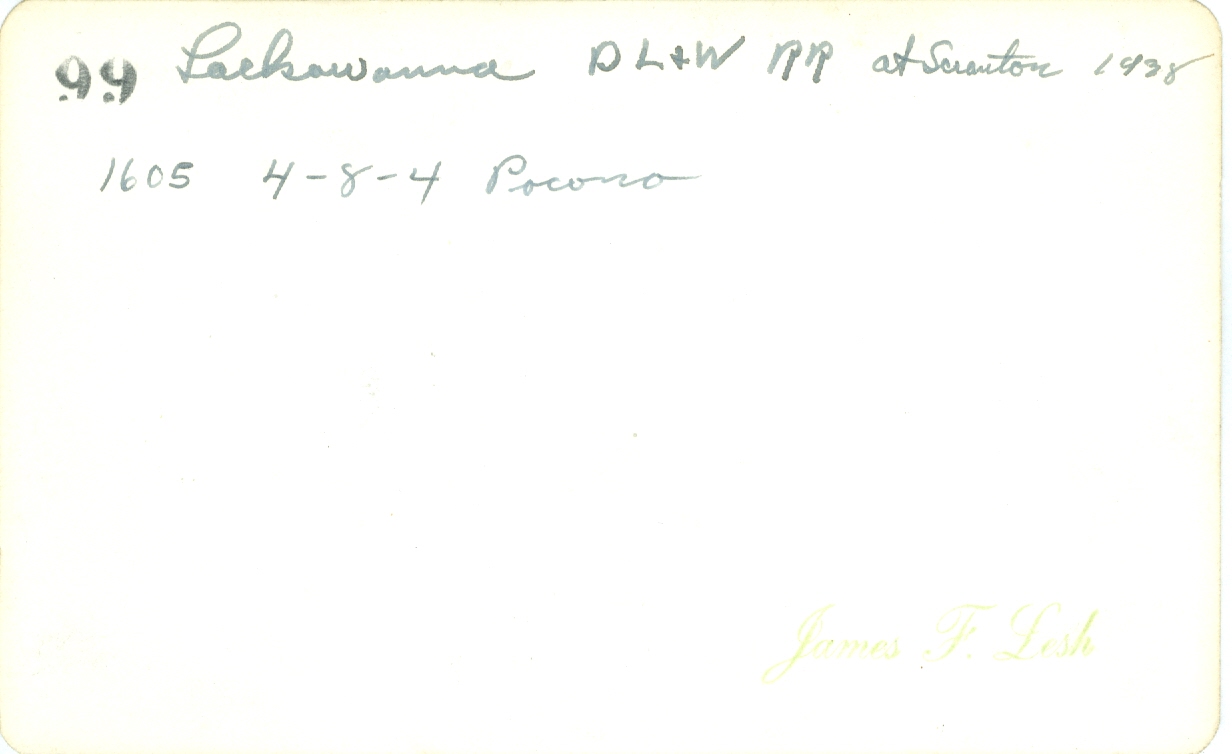 99 Lackawanna D L + W RR at Scranton 1938
1605 4-8-4 Pocono
James F. Lesh